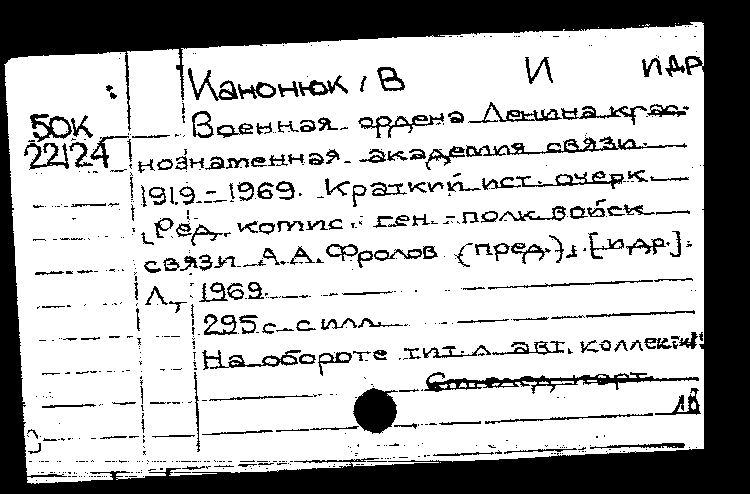 Канонюк, В И идр
50К
22124
Военная ордена Ленина крас-
нознаменная академия связи.
1919-1969. Краткий ист. очерк.
[Ред. комис.: ген.-полк войск
связи А.А.Фролов (пред.), [и др.].
Л., 1969.
295 с. с илл.
На обороте тит. л. авт. коллектив
См. след. карт.
1В